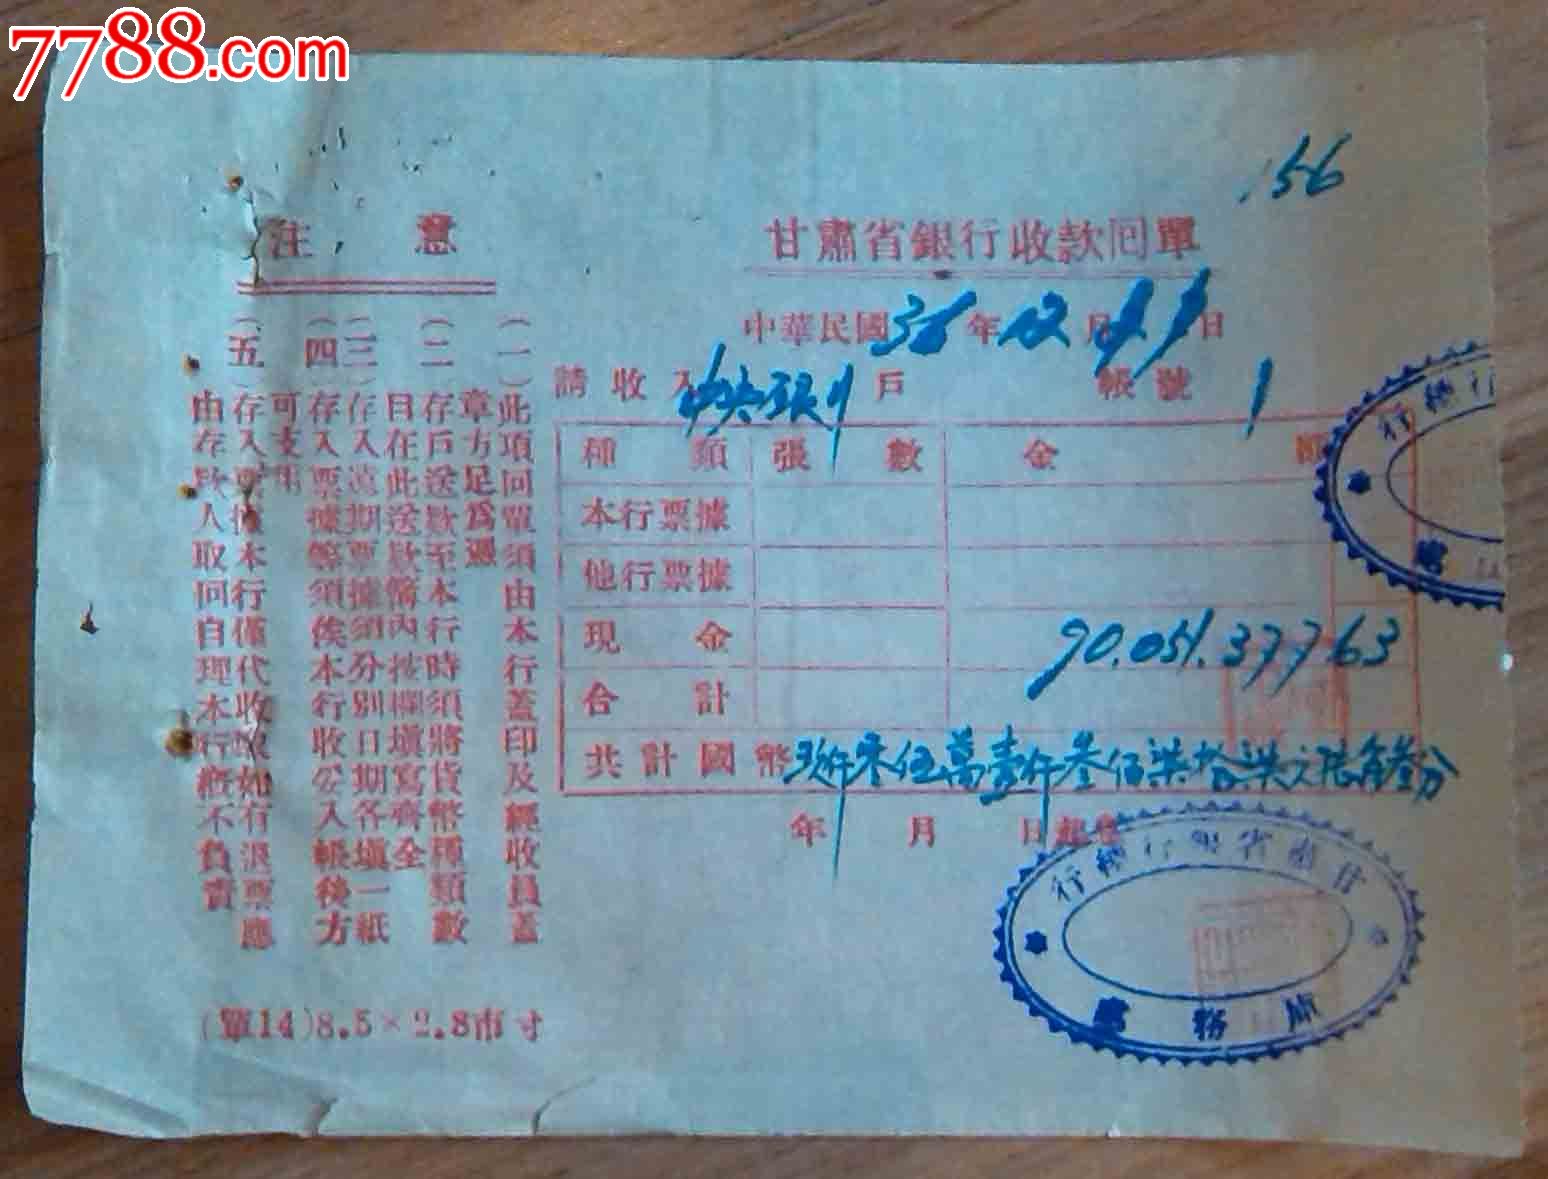 7788.com
156
甘肅省銀行收款回單
中華民國36年12月 日
請收入中央銀行戶 帳號 1
種類 張數 金額
本行票據
他行票據
現金 90.051.377 63
合計
共計國幣玖仟零伍萬壹仟叁佰柒拾柒元陸角叁分
年 月 日
甘肅省銀行總行
庫務
行總行
注意
(一)此項回單須由本行蓋印及經收員蓋章方足爲憑
(二)存戶送款至本行時須將貨幣種類數目在此送款簿內按欄塡寫齊全
(三)存入遠期票據須分別日期各塡一紙
(四)存入票據等須俟本行收妥入帳後方可支用
(五)存入票據本行僅代收款如有退票應由存款人取回自理本行槪不負責
(單14)8.5×2.8市寸